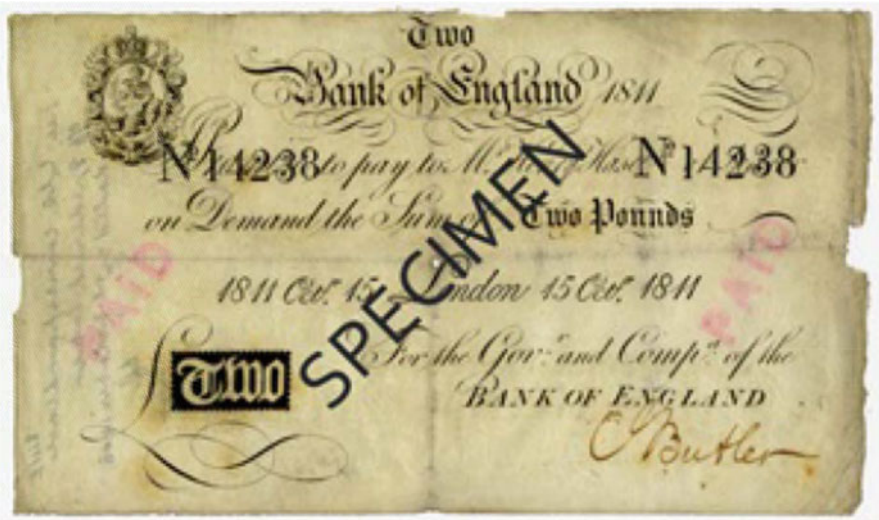 Two
Bank of England 1811
Nº 14238 to pay to Mr. Nº 14238
on Demand the Sum of Two Pounds
PAID
PAID
1811 Oct. 15 London 15 Oct. 1811
£ Two
For the Govr. and Compa. of the
BANK OF ENGLAND
C Butler
SPECIMEN